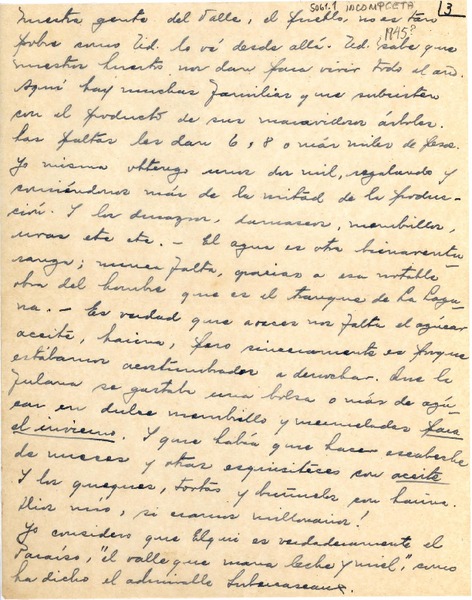 Sobr.1 INCOMPLETA 3
1945?
Nuestra gente del Valle, el pueblo, no es tan
pobre como Ud. lo vé desde allí. Ud. sabe que
nuestros huertos nos dan para vivir todo el año.
Aquí hay muchas familias que subsisten
con el producto de sus maravillosos árboles.
Las paltas les dan 6, 8 o más miles de pesos.
Yo misma obtengo unos dos mil, regalando y
comiéndonos más de la mitad de la produc-
ción. Y los duraznos, damascos, membrillos,
uvas etc etc. - El agua es otra bienaventu-
ranza; nunca falta, gracias a esa notable
obra del hombre que es el tranque de La Lagu-
na. - Es verdad que a veces nos falta el azúcar
aceite, harina, pero sinceramente es porque
estábamos acostumbrados a derrochar. Que la
fulana se gastaba una bolsa o más de azú-
car en dulce membrillo y mermeladas para
el invierno. Y que había que hacer escabeche
de nueces y otras esquisiteces con aceite
Y los queques, tortas y buñuelos con harina.
Dios mío, si eramos millonarios!
Yo considero que Elqui es verdaderamente el
Paraíso, "el valle que mana leche y miel", como
ha dicho el admirable Subercaseaux.